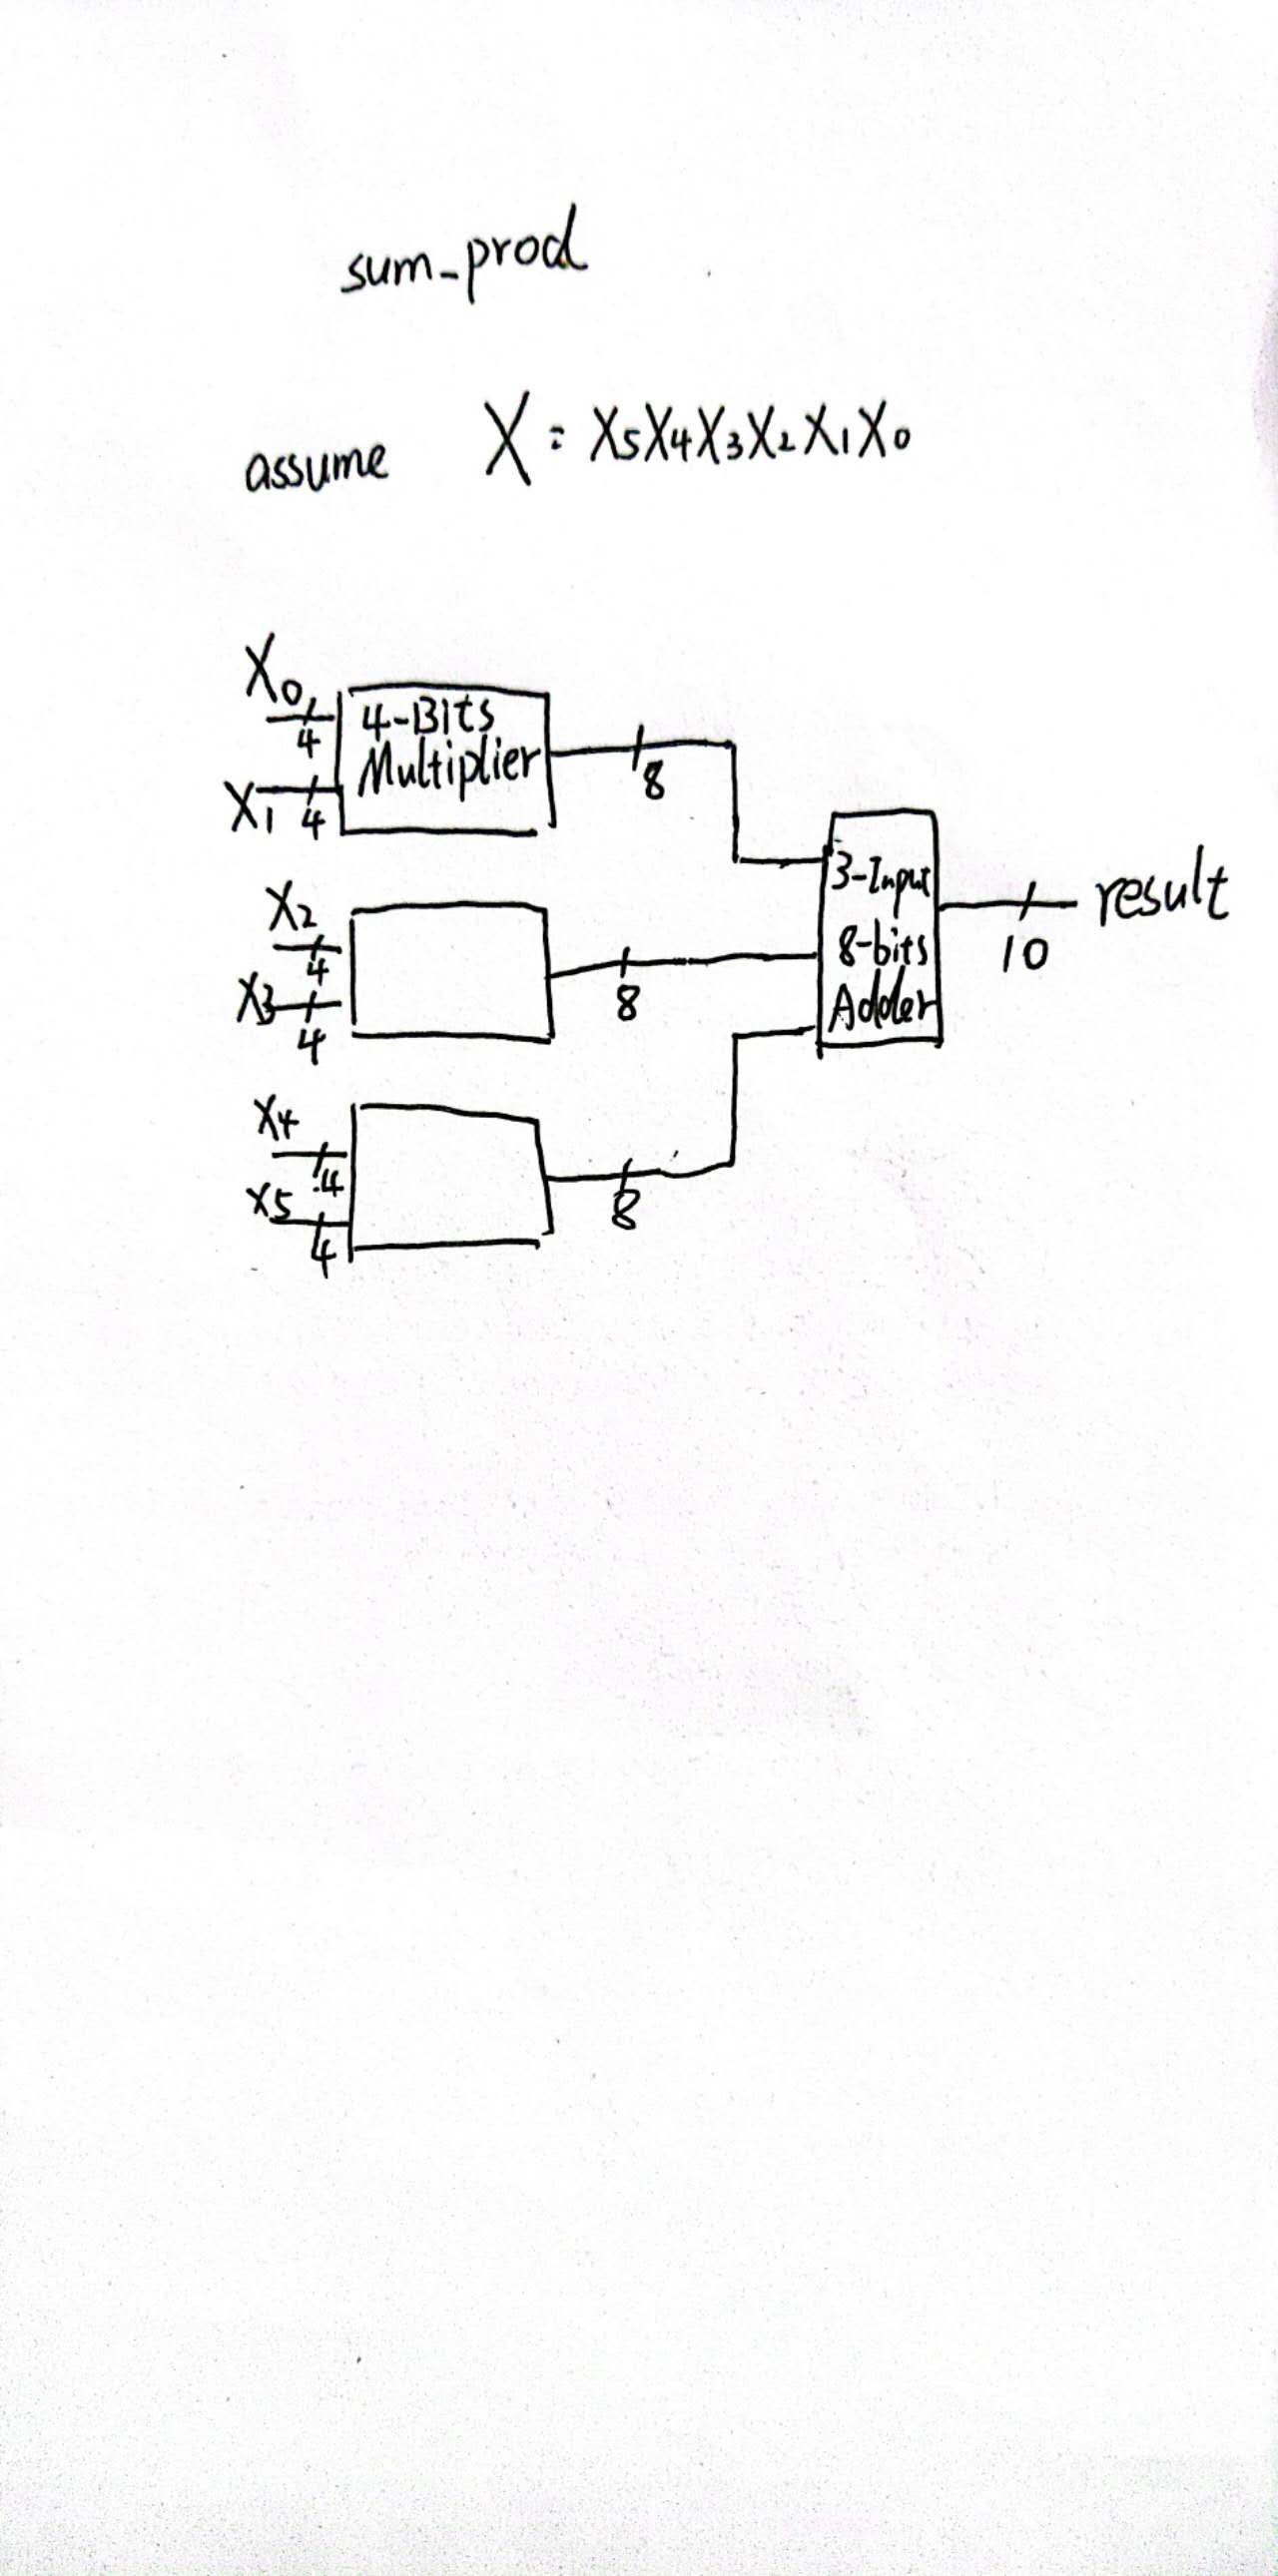 sum_prod
assume X = X5X4X3X2X1X0
X0
4
X1 4
4-Bits
Multiplier
8
X2
4
X3
4
8
X4
4
X5
4
8
3-Input
8-bits
Adder
10
result